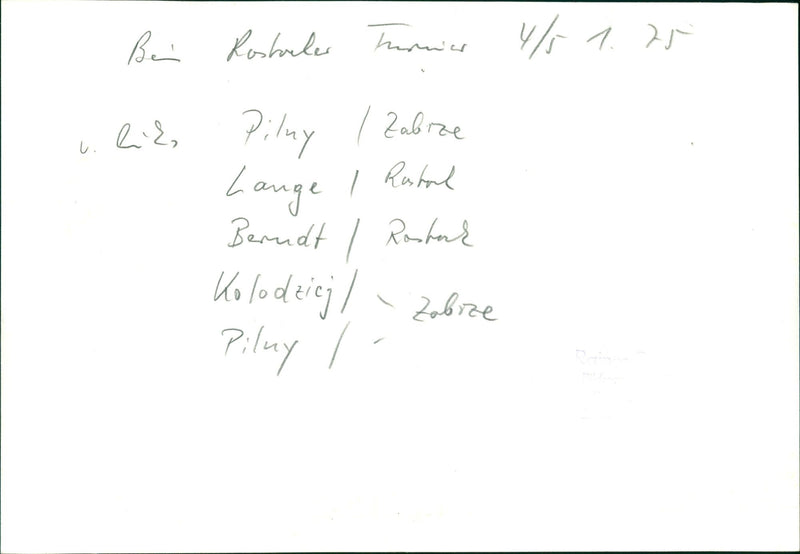 Bei Rostocker Turnier 4/5 1. 75
v. links Pilny / Zabrze
Lange / Rostock
Berndt / Rostock
Kolodziej / Zabrze
Pilny /